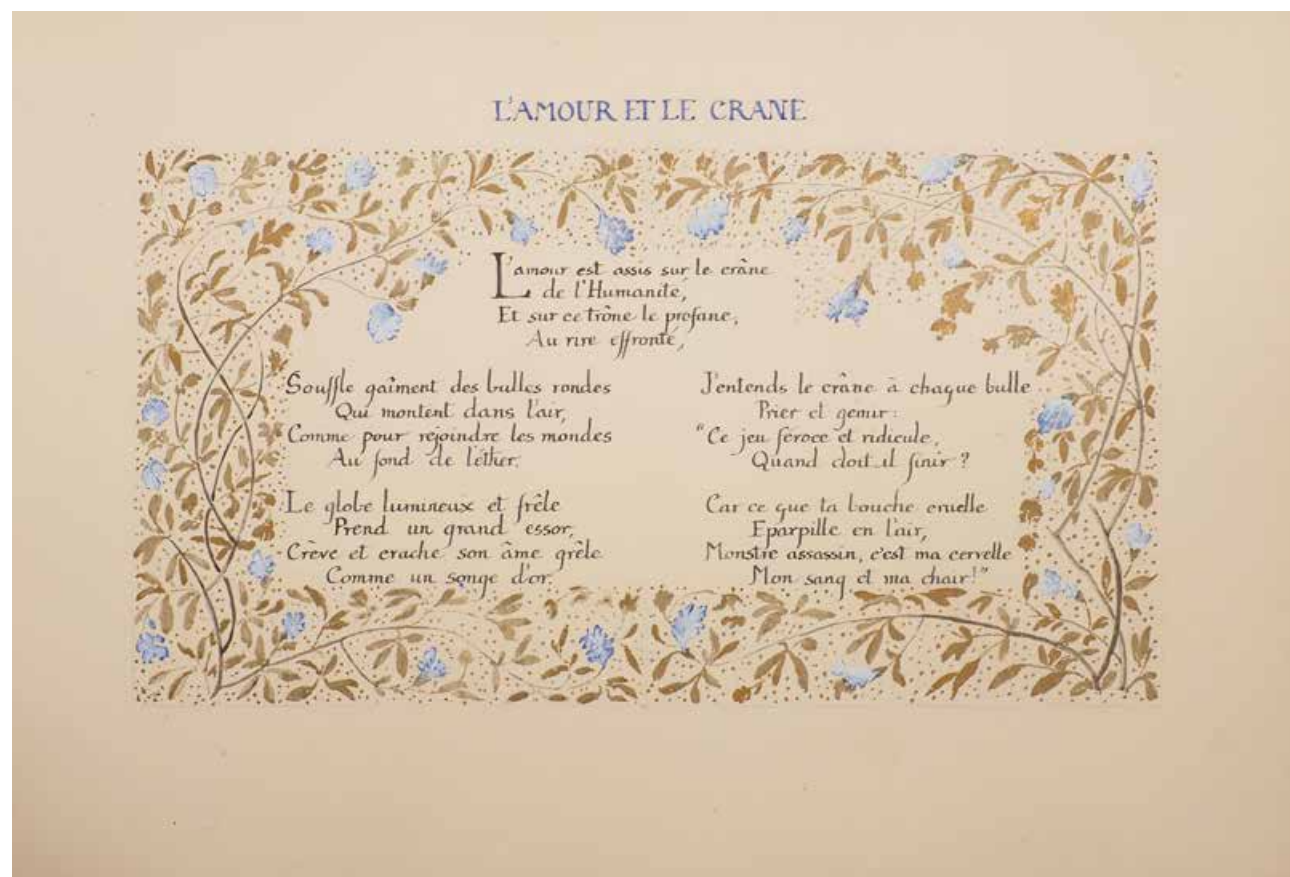 L'AMOUR ET LE CRANE
L'amour est assis sur le crâne
de l'Humanité,
Et sur ce trône le profane,
Au rire effronté,
Souffle gaîment des bulles rondes
Qui montent dans l'air,
Comme pour rejoindre les mondes
Au fond de l'éther.
Le globe lumineux et frêle
Prend un grand essor,
Crève et crache son âme grêle
Comme un songe d'or.
J'entends le crâne à chaque bulle
Prier et gemir :
"Ce jeu féroce et ridicule,
Quand doit-il finir ?
Car ce que ta bouche cruelle
Eparpille en l'air,
Monstre assassin, c'est ma cervelle
Mon sang et ma chair!"